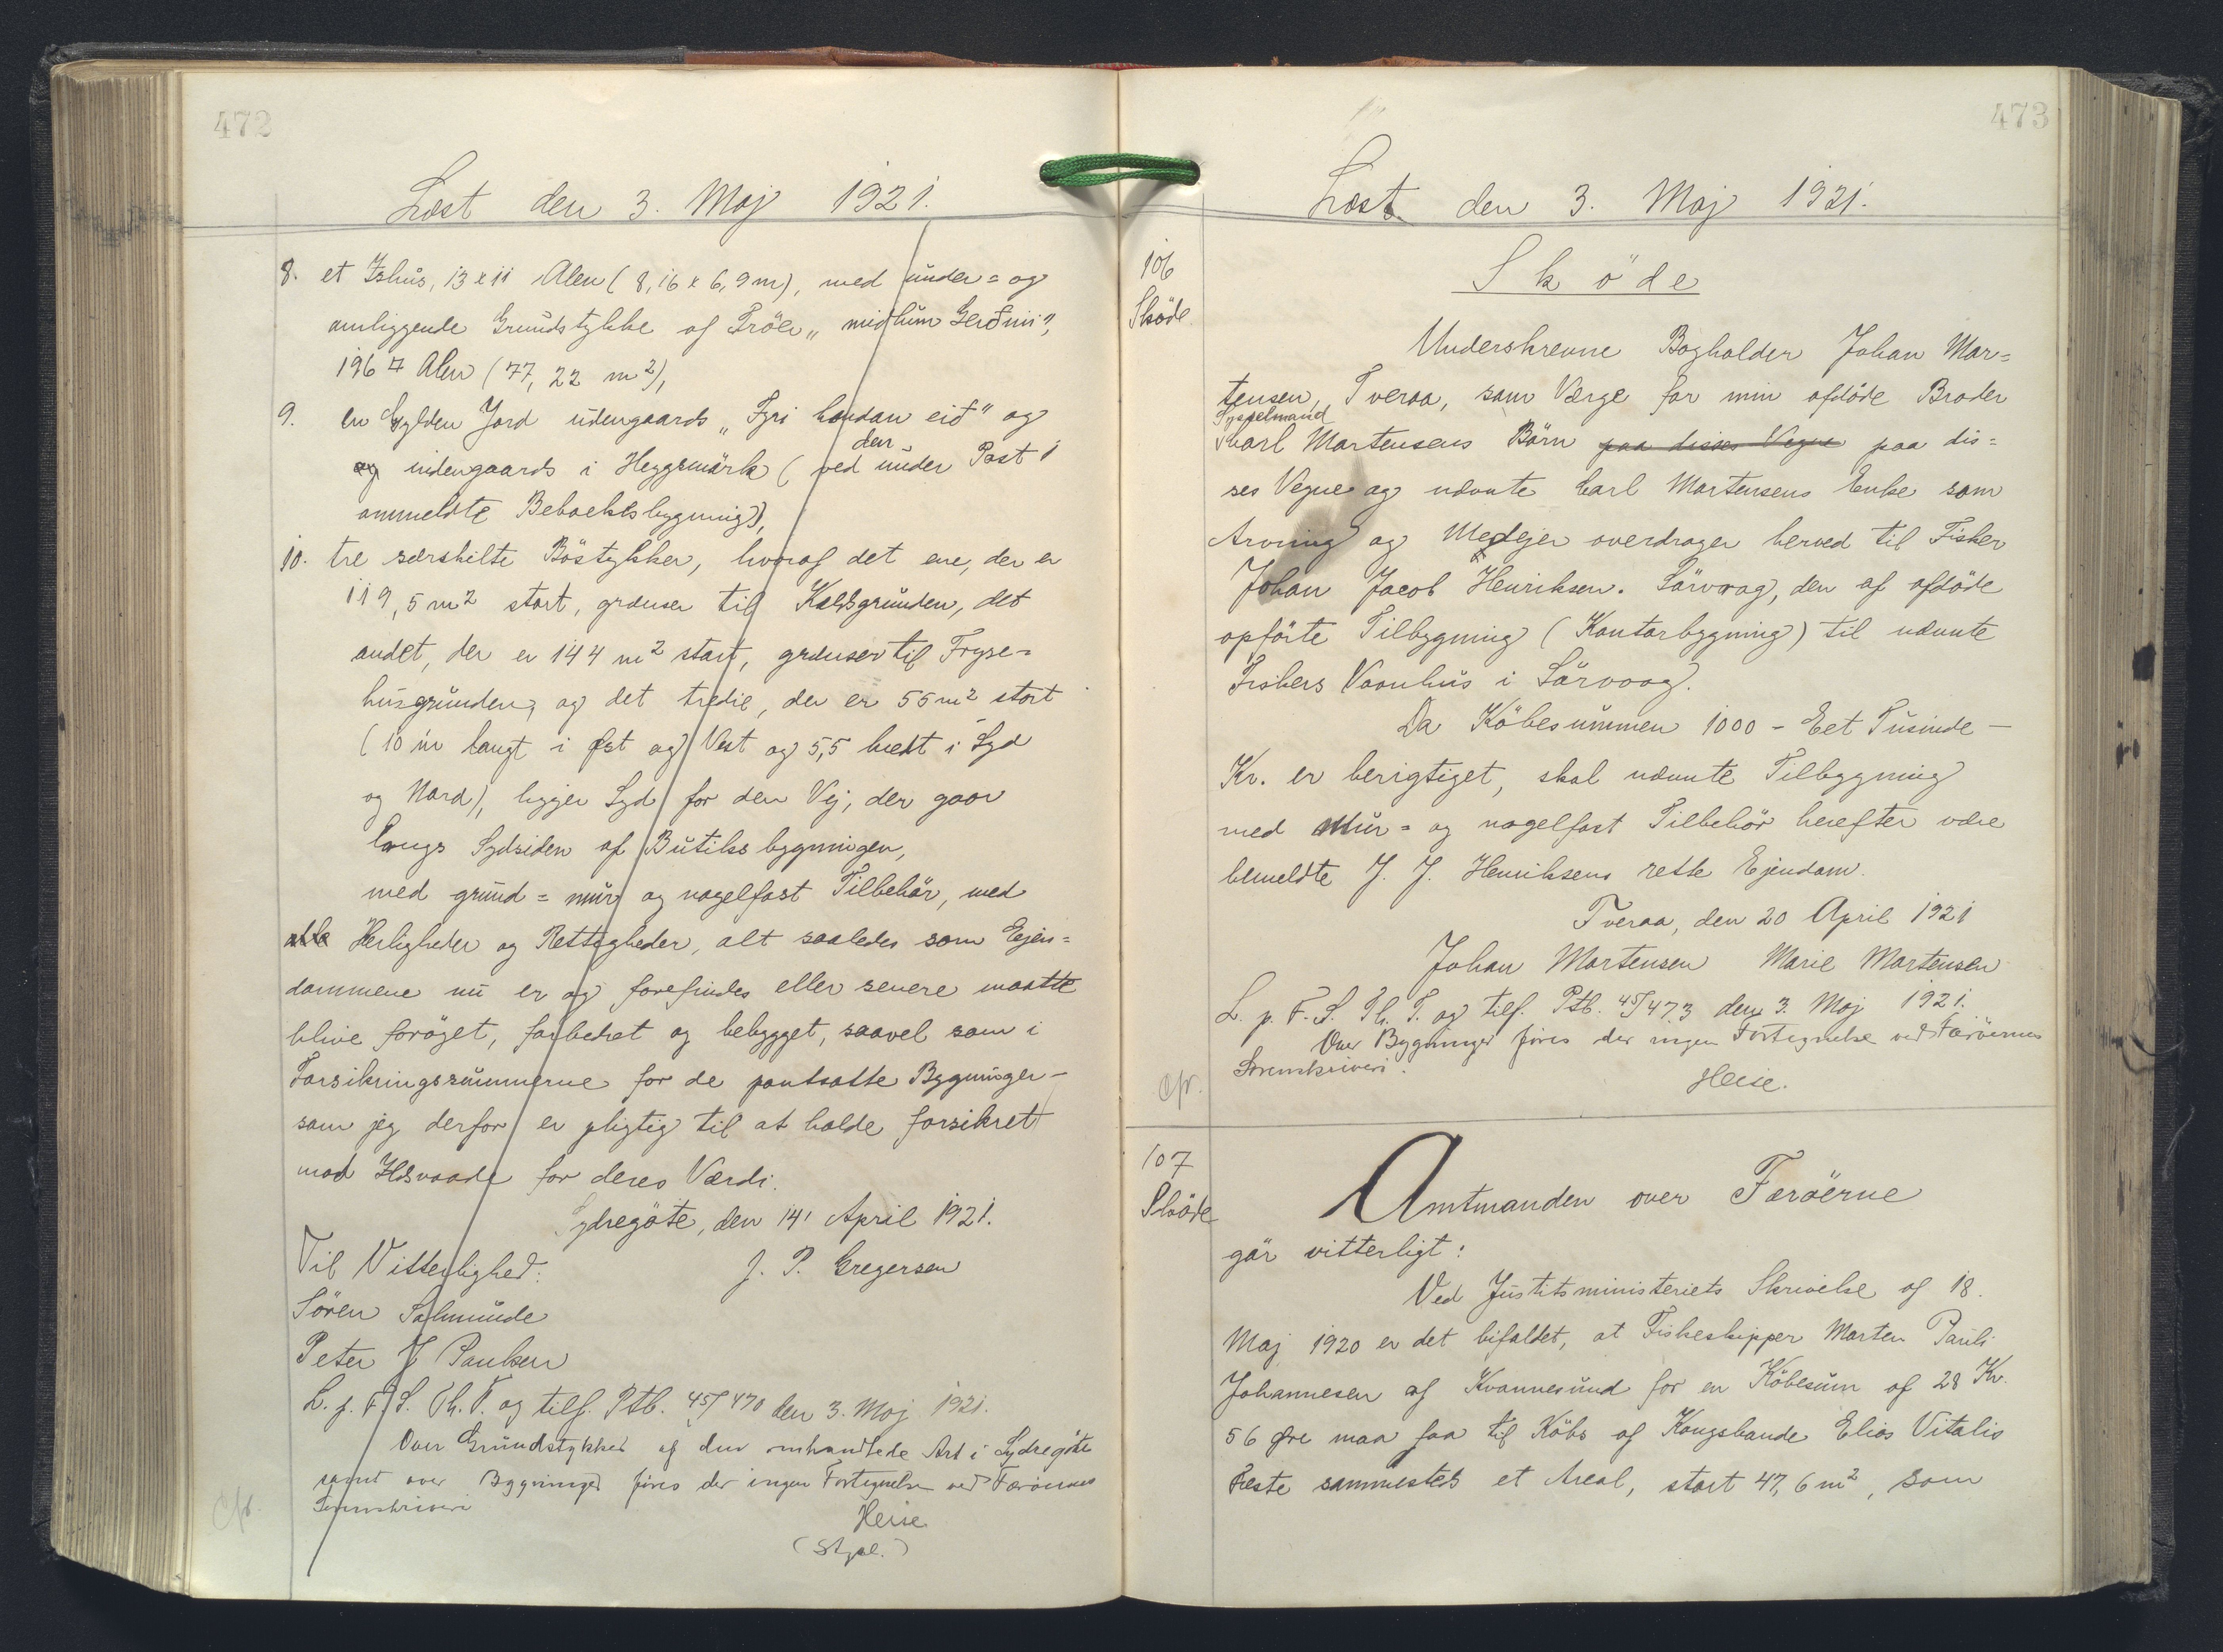 472
Læst den 3. Maj 1921.
8. et Ishus, 13 x 11 Alen (8,16 x 6,9 m), med under= og
omliggende Grundstykke af Tröen „miðlum Gerðini",
196 □ Alen (77,22 m²),
9. en Gylden Jord udengaards „Fyri handan eið" og
den
og indengaards i Heygsmörk (ved under Post 1
ommeldte Beboelsbygning),
10. tre særskilte Böstykker, hvoraf det ene, der er
119,5 m² stort, grænser til Kaldsgrunden, det
andet, der er 144 m² stort, grænser til Fryse=
husgrunden, og det tredie, der er 55 m² stort
(10 m langt i Øst og Vest og 5,5 bredt i Syd
og Nord), ligger Syd for den Vej, der gaar
langs Sydsiden af Butiksbygningen,
med grund= mur og nagelfast Tilbehör, med
alle Herligheder og Rettigheder, alt saaledes som Ejen=
dommene nu er og forefindes eller senere maatte
blive forøget, forbedret og bebygget, saavel som i
Forsikringssummerne for de pantsatte Bygninger -
som jeg derfor er pligtig til at holde forsikret
mod Ildsvaade for deres Værdi.
Sydregöte, den 14' April 1921.
Til Vitterlighed: J. P. Gregersen
Sören Salmunde
Peter J Paulsen
L. p. F. S. Th. T. og tilf. Ptb. 45/470 den 3. Maj 1921.
Over Grundstykker af den omhandlede Art i Sydregöte
samt over Bygninger föres der ingen Fortegnelse ved Færöernes
Sorenskriveri
Heise
cfr.
473
Læst den 3. Maj 1921.
106
Sköde
Sköde
Underskrevne Bogholder Johan Mor=
tensen, Tveraa, som Værge for min afdöde Broder
Sysselmand
Carl Mortensens Börn paa disses Vegne paa dis=
ses Vegne og nævnte Carl Mortensens Enke som
Arving og Medejer overdrager herved til Fisker
Johan Jacob Henriksen. Sörvaag, den af afdöde
opförte Tilbygning (Kontorbygning) til nævnte
Fiskers Vaanhus i Sörvaag.
Da Köbesummen 1000 - Eet Tusinde -
Kr. er berigtiget, skal nævnte Tilbygning
med Mur= og nagelfast Tilbehör herefter være
bemeldte J. J. Henriksens rette Ejendom.
Tveraa, den 20 April 1921
Johan Mortensen Marie Mortensen
L. p. F. S. Th. T. og tilf. Ptb. 45/473 den 3. Maj 1921.
Over Bygninger föres der ingen Fortegnelse ved Færöernes
Sorenskriveri.
cfr. Heise.
107
Sköde
Amtmanden over Færöerne
gör vitterligt:
Ved Justitsministeriets Skrivelse af 18.
Maj 1920 er det bifaldet, at Fiskeskipper Morten Pauli
Johannesen af Kvannesund for en Köbesum af 28 Kr.
56 Øre maa faa til Köbs af Kongsbonde Elias Vitalis
Fæste sammesteds et Areal, stort 47,6 m², som